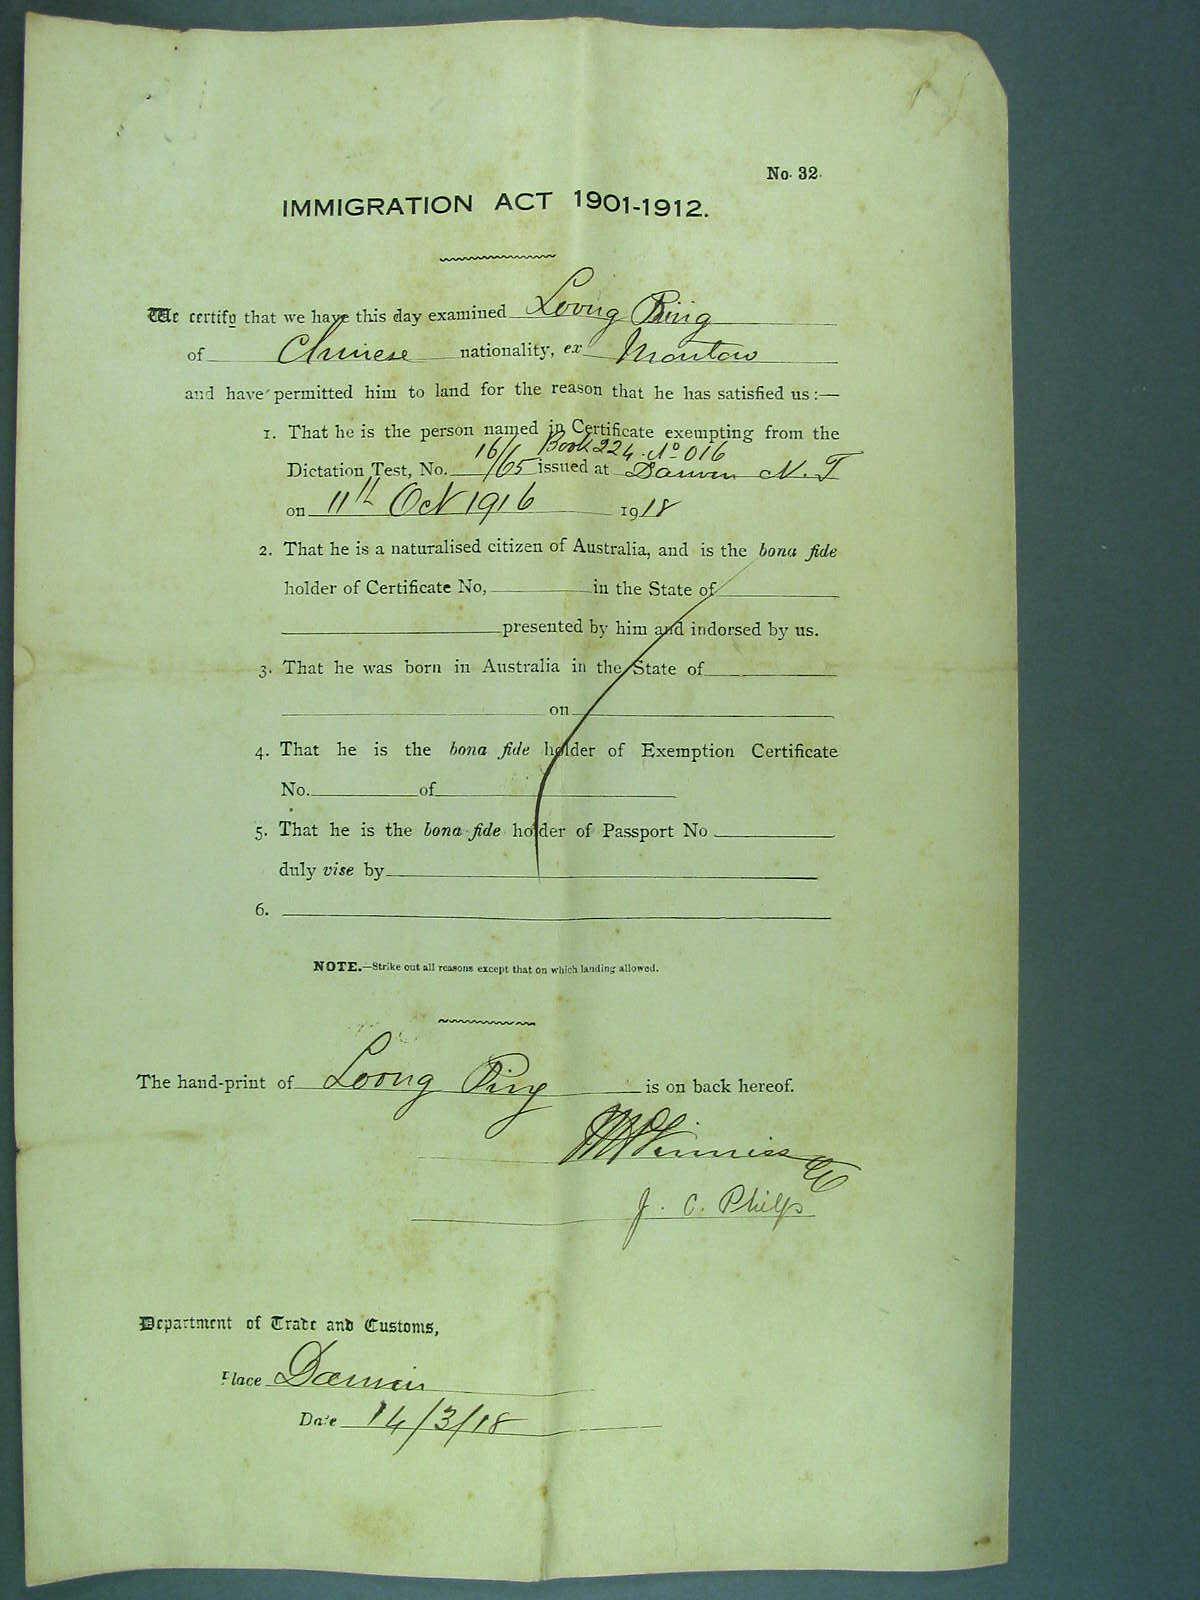 No. 32.
IMMIGRATION ACT 1901-1912.
We certify that we have this day examined Loong Ping
of Chinese nationality, ex Montoro
and have permitted him to land for the reason that he has satisfied us:—
1. That he is the person named in Certificate exempting from the
16/ Book 224 No 016
Dictation Test, No. /65 issued at Darwin N.T
on 11th Oct 1916 1918
2. That he is a naturalised citizen of Australia, and is the bona fide
holder of Certificate No, in the State of
presented by him and indorsed by us.
3. That he was born in Australia in the State of
on
4. That he is the bona fide holder of Exemption Certificate
No. of
5. That he is the bona fide holder of Passport No
duly vise by
6.
NOTE.—Strike out all reasons except that on which landing allowed.
The hand-print of Loong Ping is on back hereof.
J. C. Philps
Department of Trade and Customs,
Place Darwin
Date 14/3/18